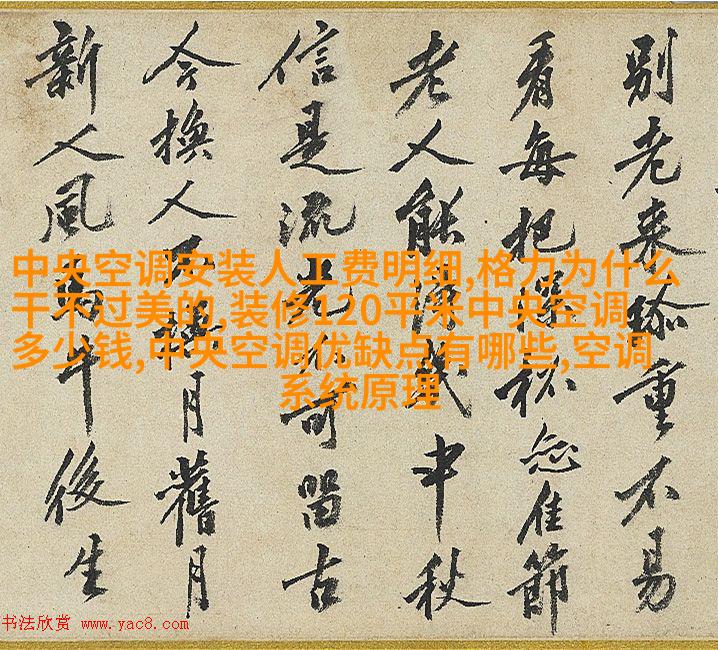 别老来重不易
看每把佳節
老人能得幾中秋
信是流光不可留古
今換人不換月舊月
新人風馬牛後生
中央空调安装人工费明细,格力为什么
干不过美的,装修120平米中央空调
多少钱,中央空调优缺点有哪些,空调
系统原理
书法欣赏 www.yac8.com